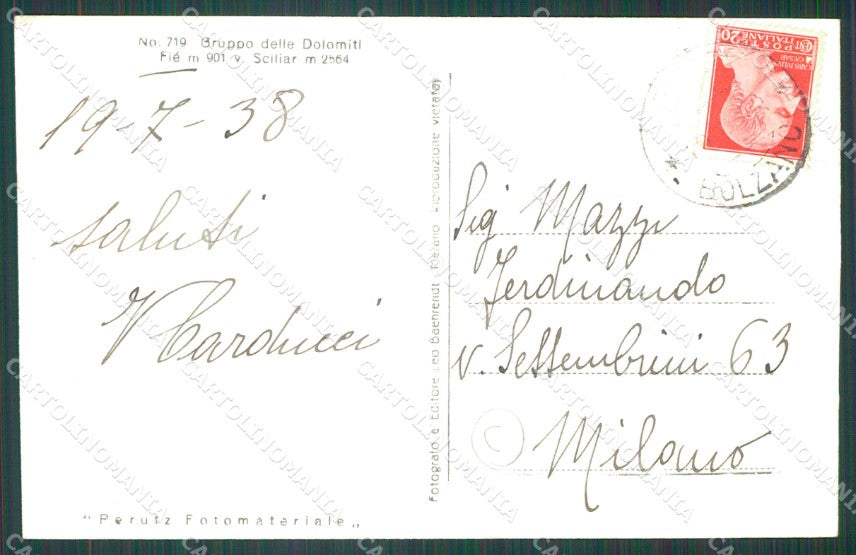 No. 719 Gruppo delle Dolomiti
Fié m 901 v. Sciliar m 2564
19-7-38
saluti
Carducci
"Perutz Fotomateriale"
Fotografo e Editore Leo Baehrendt - Merano Riproduzione vietata
CENT 20
POSTE ITALIANE
CAESAR
BOLZANO
Sig Mazzi
Ferdinando
v. Settembrini 63
C
Milano
CARTOLINOMANIA